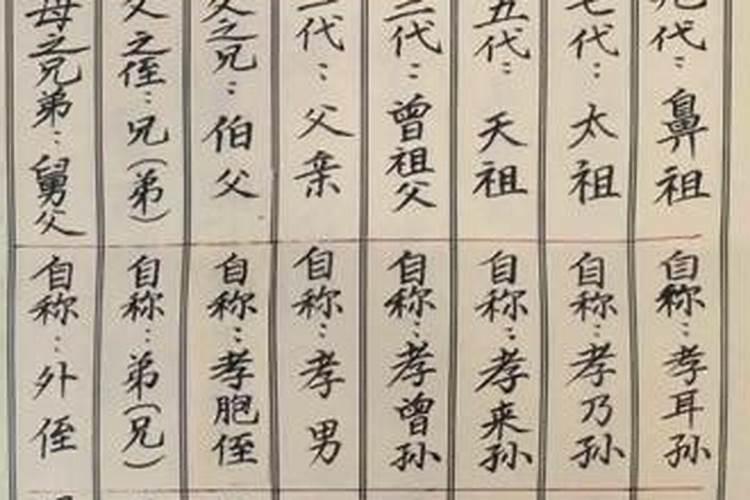 九代：鼻祖
自称：孝耳孙
七代：太祖
自称：孝乃孙
五代：天祖
自称：孝来孙
三代：曾祖父
自称：孝曾孙
一代：父亲
自称：孝男
父之兄：伯父
自称：孝胞侄
父之侄：兄（弟）
自称：弟（兄）
母之兄弟：舅父
自称：外侄